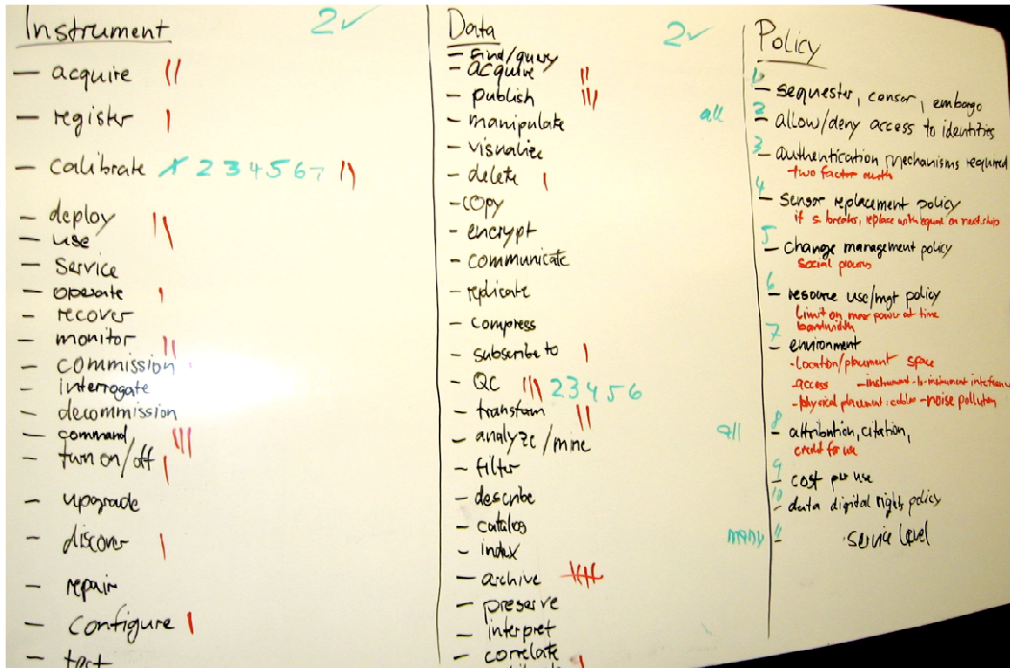 Instrument 2✓
— acquire ||
— register |
— calibrate X 2 3 4 5 6 7 ||
— deploy ||
— use
— Service
— operate |
— recover
— monitor ||
— commission
— interrogate
— decommission
— command |||
— turn on/off |
— upgrade
— discover |
— repair
— configure |
— test
Data 2✓
— find/query
— acquire ||
— publish |||
— manipulate
— visualize
— delete |
— copy
— encrypt
— communicate
— replicate
— compress
— subscribe to |
— QC ||| 2 3 4 5 6
— transform ||
— analyze/mine
— filter
— describe
— catalog
— index
— archive ||||
— preserve
— interpret
— correlate
Policy
1 — sequester, censor, embargo
all 2 — allow/deny access to identities
3 — authentication mechanisms required
two factor auth
4 — sensor replacement policy
if s. breaks, replace with equal on next ship
5 — change management policy
social process
6 — resource use/mgt policy
Limit on max power at time
bandwidth
7 — environment
- location/placement space
- access - instrument-to-instrument interference
- physical placement: cables - noise pollution
all 8 — attribution, citation,
credit for use
9 — cost per use
10 — data digital rights policy
many 11 — service level